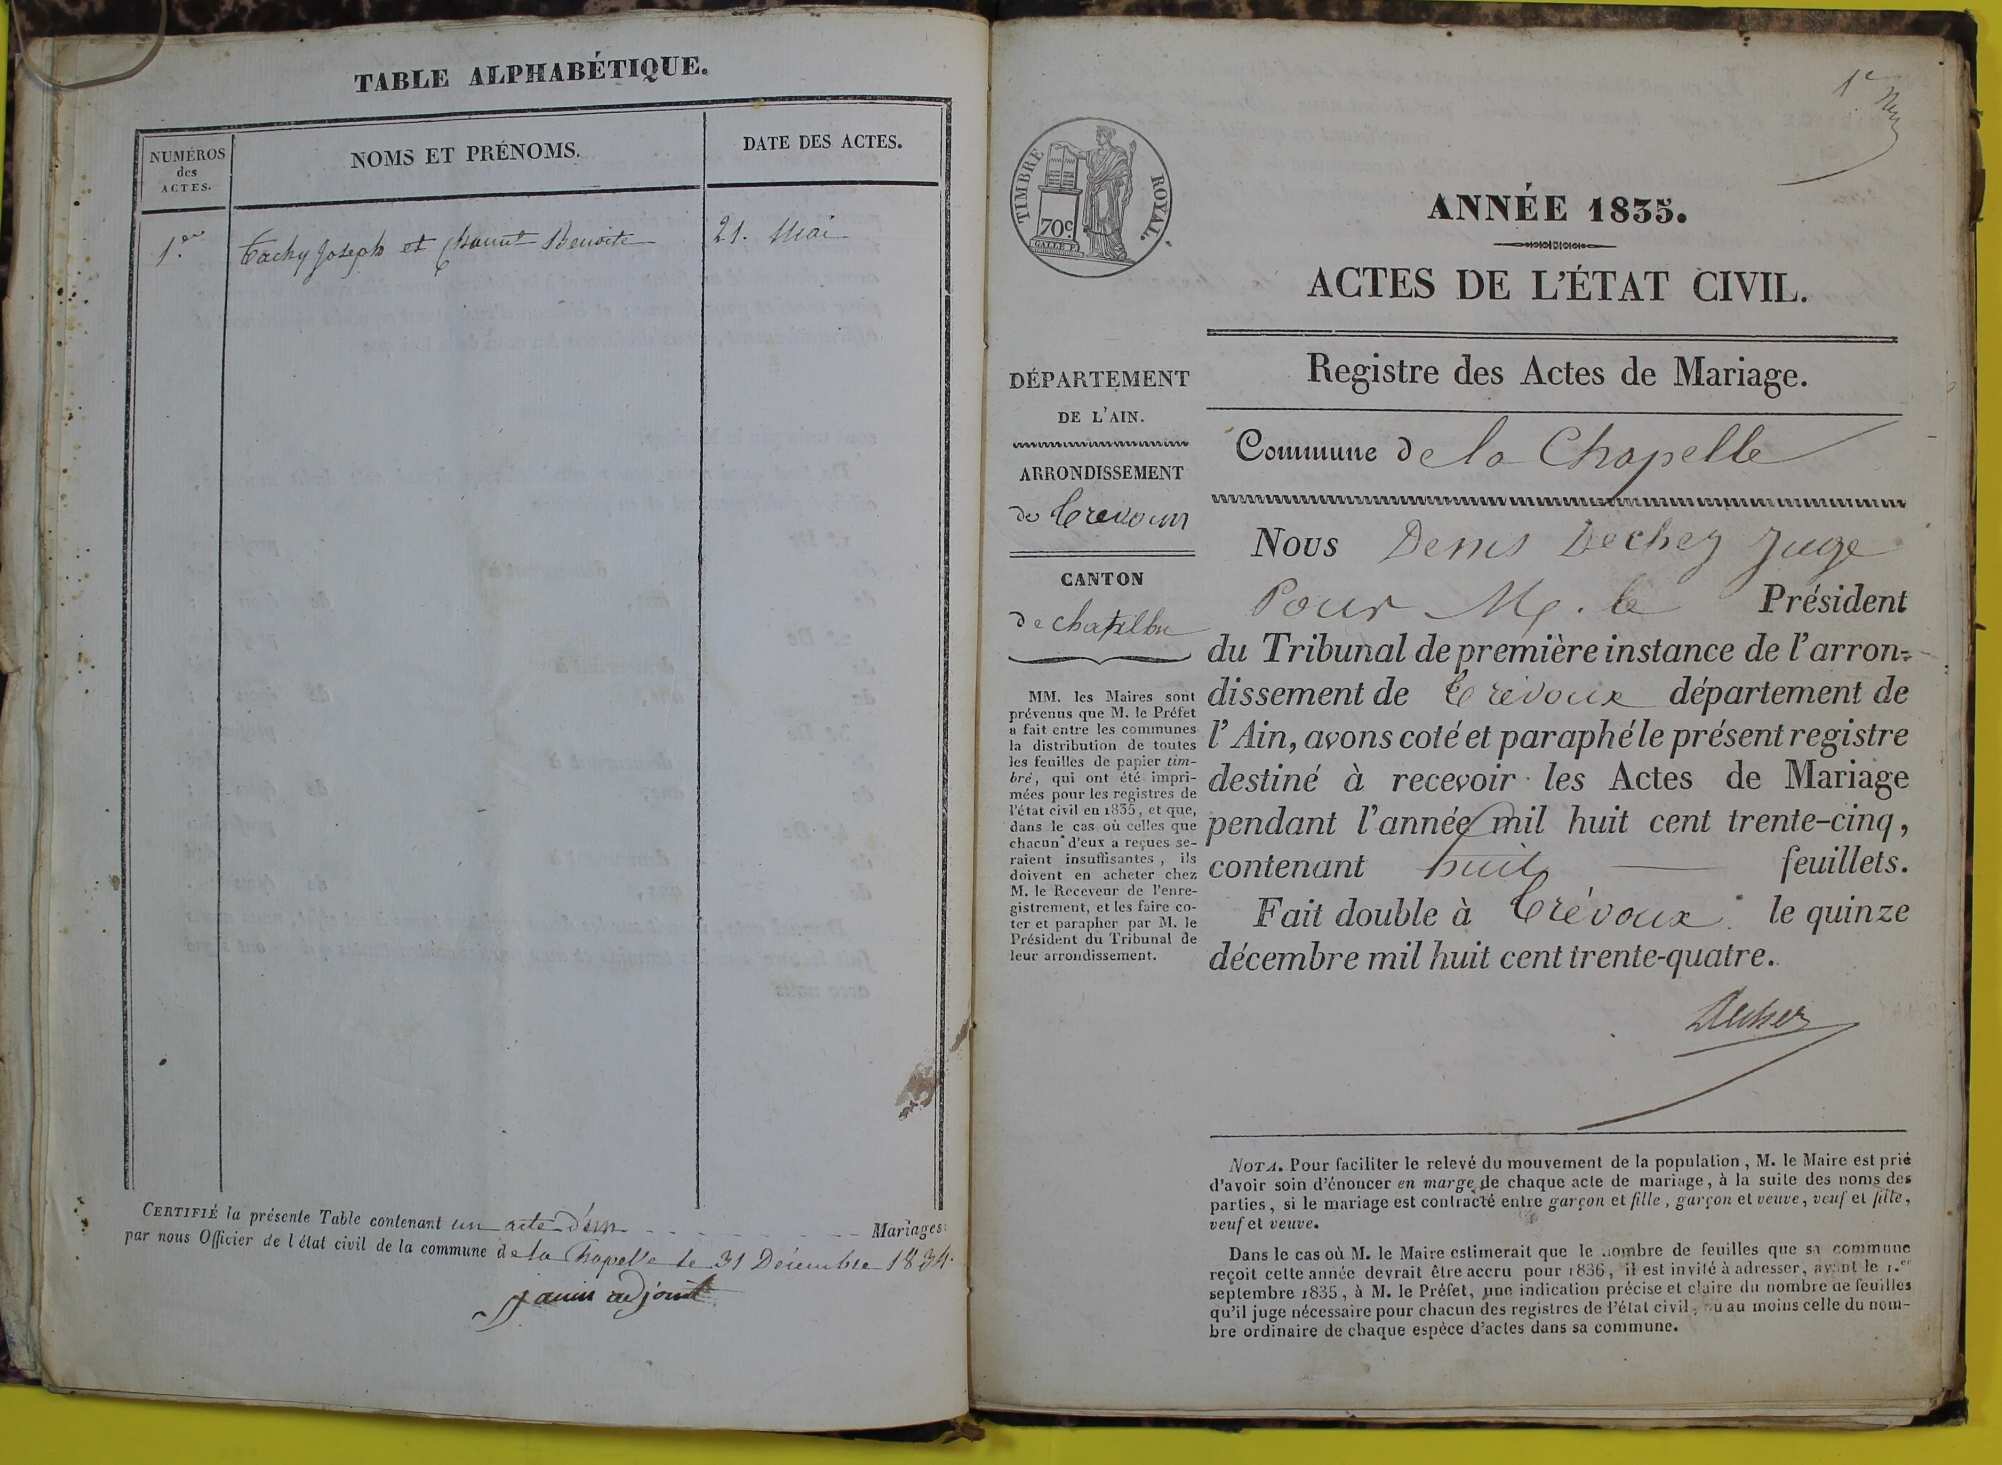 TABLE ALPHABÉTIQUE.
NUMÉROS
des
ACTES.
NOMS ET PRÉNOMS.
DATE DES ACTES.
1.er
Tachy Joseph et Benoite
21. Mai
CERTIFIÉ la présente Table contenant un acte Mariages
par nous Officier de l'état civil de la commune de la Chapelle le 31 Décembre 1834.
Janin adjoint
1e
TIMBRE ROYAL.
70c.
ANNÉE 1835.
ACTES DE L'ÉTAT CIVIL.
Registre des Actes de Mariage.
DÉPARTEMENT
DE L'AIN.
ARRONDISSEMENT
de Trevoux
CANTON
de
MM. les Maires sont
prévenus que M. le Préfet
a fait entre les communes
la distribution de toutes
les feuilles de papier tim-
bré, qui ont été impri-
mées pour les registres de
l'état civil en 1835, et que,
dans le cas où celles que
chacun d'eux a reçues se-
raient insuffisantes, ils
doivent en acheter chez
M. le Receveur de l'enre-
gistrement, et les faire co-
ter et parapher par M. le
Président du Tribunal de
leur arrondissement.
Commune de la Chapelle
Nous Denis Dechey Juge
Pour M. le Président
du Tribunal de première instance de l'arron-
dissement de Trévoux département de
l'Ain, avons coté et paraphé le présent registre
destiné à recevoir les Actes de Mariage
pendant l'année mil huit cent trente-cinq,
contenant huit feuillets.
Fait double à Trévoux le quinze
décembre mil huit cent trente-quatre.
NOTA. Pour faciliter le relevé du mouvement de la population, M. le Maire est prié
d'avoir soin d'énoncer en marge de chaque acte de mariage, à la suite des noms des
parties, si le mariage est contracté entre garçon et fille, garçon et veuve, veuf et fille,
veuf et veuve.
Dans le cas où M. le Maire estimerait que le nombre de feuilles que sa commune
reçoit cette année devrait être accru pour 1836, il est invité à adresser, avant le 1.er
septembre 1835, à M. le Préfet, une indication précise et claire du nombre de feuilles
qu'il juge nécessaire pour chacun des registres de l'état civil, ou au moins celle du nom-
bre ordinaire de chaque espèce d'actes dans sa commune.